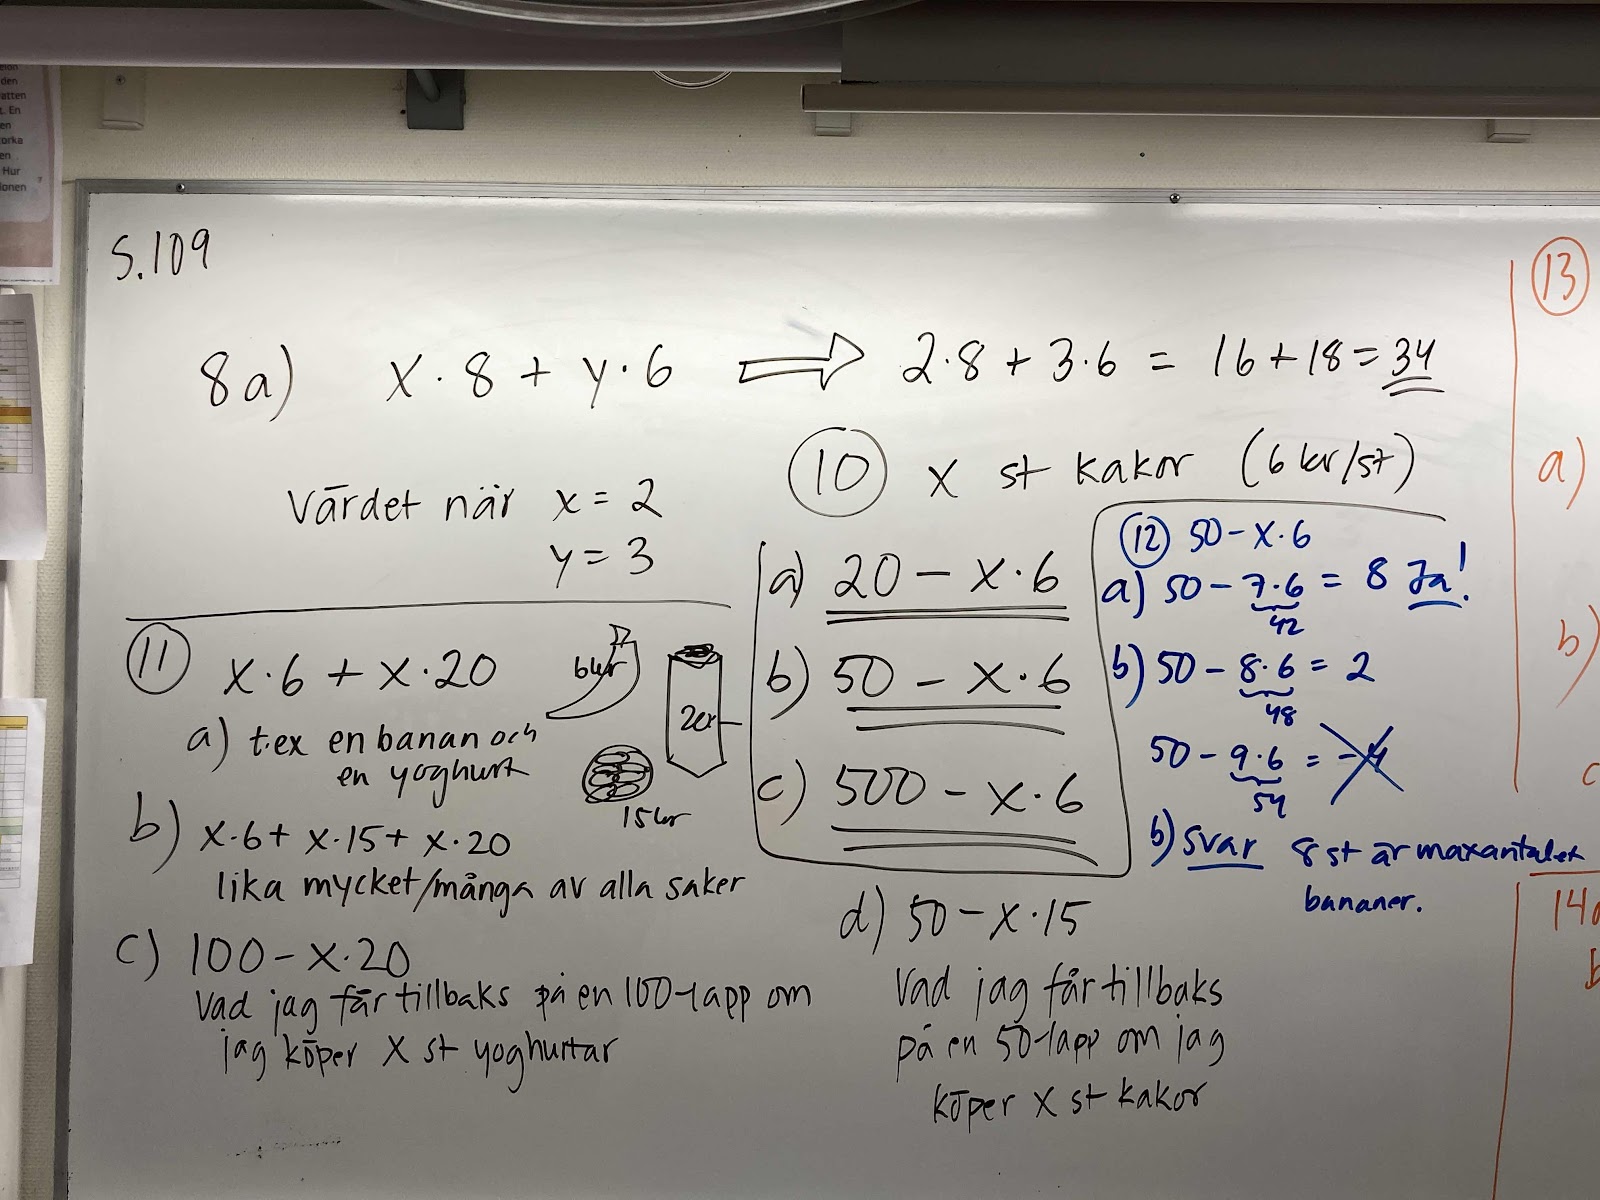 elon
den
atten
t. En
en
torka
en
Hur
ionen
S.109
8a) x·8 + y·6 ⇒ 2·8 + 3·6 = 16 + 18 = 34
Värdet när x = 2
y = 3
11 x·6 + x·20
a) t.ex en banan och
en yoghurt
6kr
20kr
15kr
b) x·6 + x·15 + x·20
lika mycket/många av alla saker
c) 100 - x·20
Vad jag får tillbaks på en 100-lapp om
jag köper x st yoghurtar
10 x st kakor (6 kr/st)
a) 20 - x·6
b) 50 - x·6
c) 500 - x·6
d) 50 - x·15
Vad jag får tillbaks
på en 50-lapp om jag
köper x st kakor
12 50 - x·6
a) 50 - 7·6 = 8 Ja!
42
b) 50 - 8·6 = 2
48
50 - 9·6 = -4
54
b) svar 8 st är maxantalet
bananer.
13
a)
b)
c
14a
b